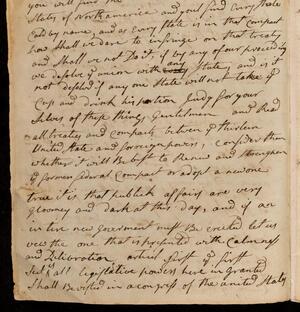 you will find the
States of North america and you find Every State
Cald by name, and as Every State is in that Compact
how Shall we dare to infringe on that treaty
and Shall we not Do it, if by any of our proceedings
we desolve ye union with any State, and is it
not desolvd if any one State will not take ye
Cup and drink his potion Judg for your
Selves of these things, Gentelmen and Read
all treaties and compacts between ye thirteen
United State and foreign powers, consider then
whether it will Be best to Renew and strengthen
ye former federal Compact or adopt a new one
true it is that publick affairs are very
gloomey and dark at this day, and if an
intire new goverment must Be erected let us
vew the one that is presented with Calmness
and Deliberation articel furst ye furst
Sect all Legislative powers here in Granted
Shall Be vested in a congress of the united States